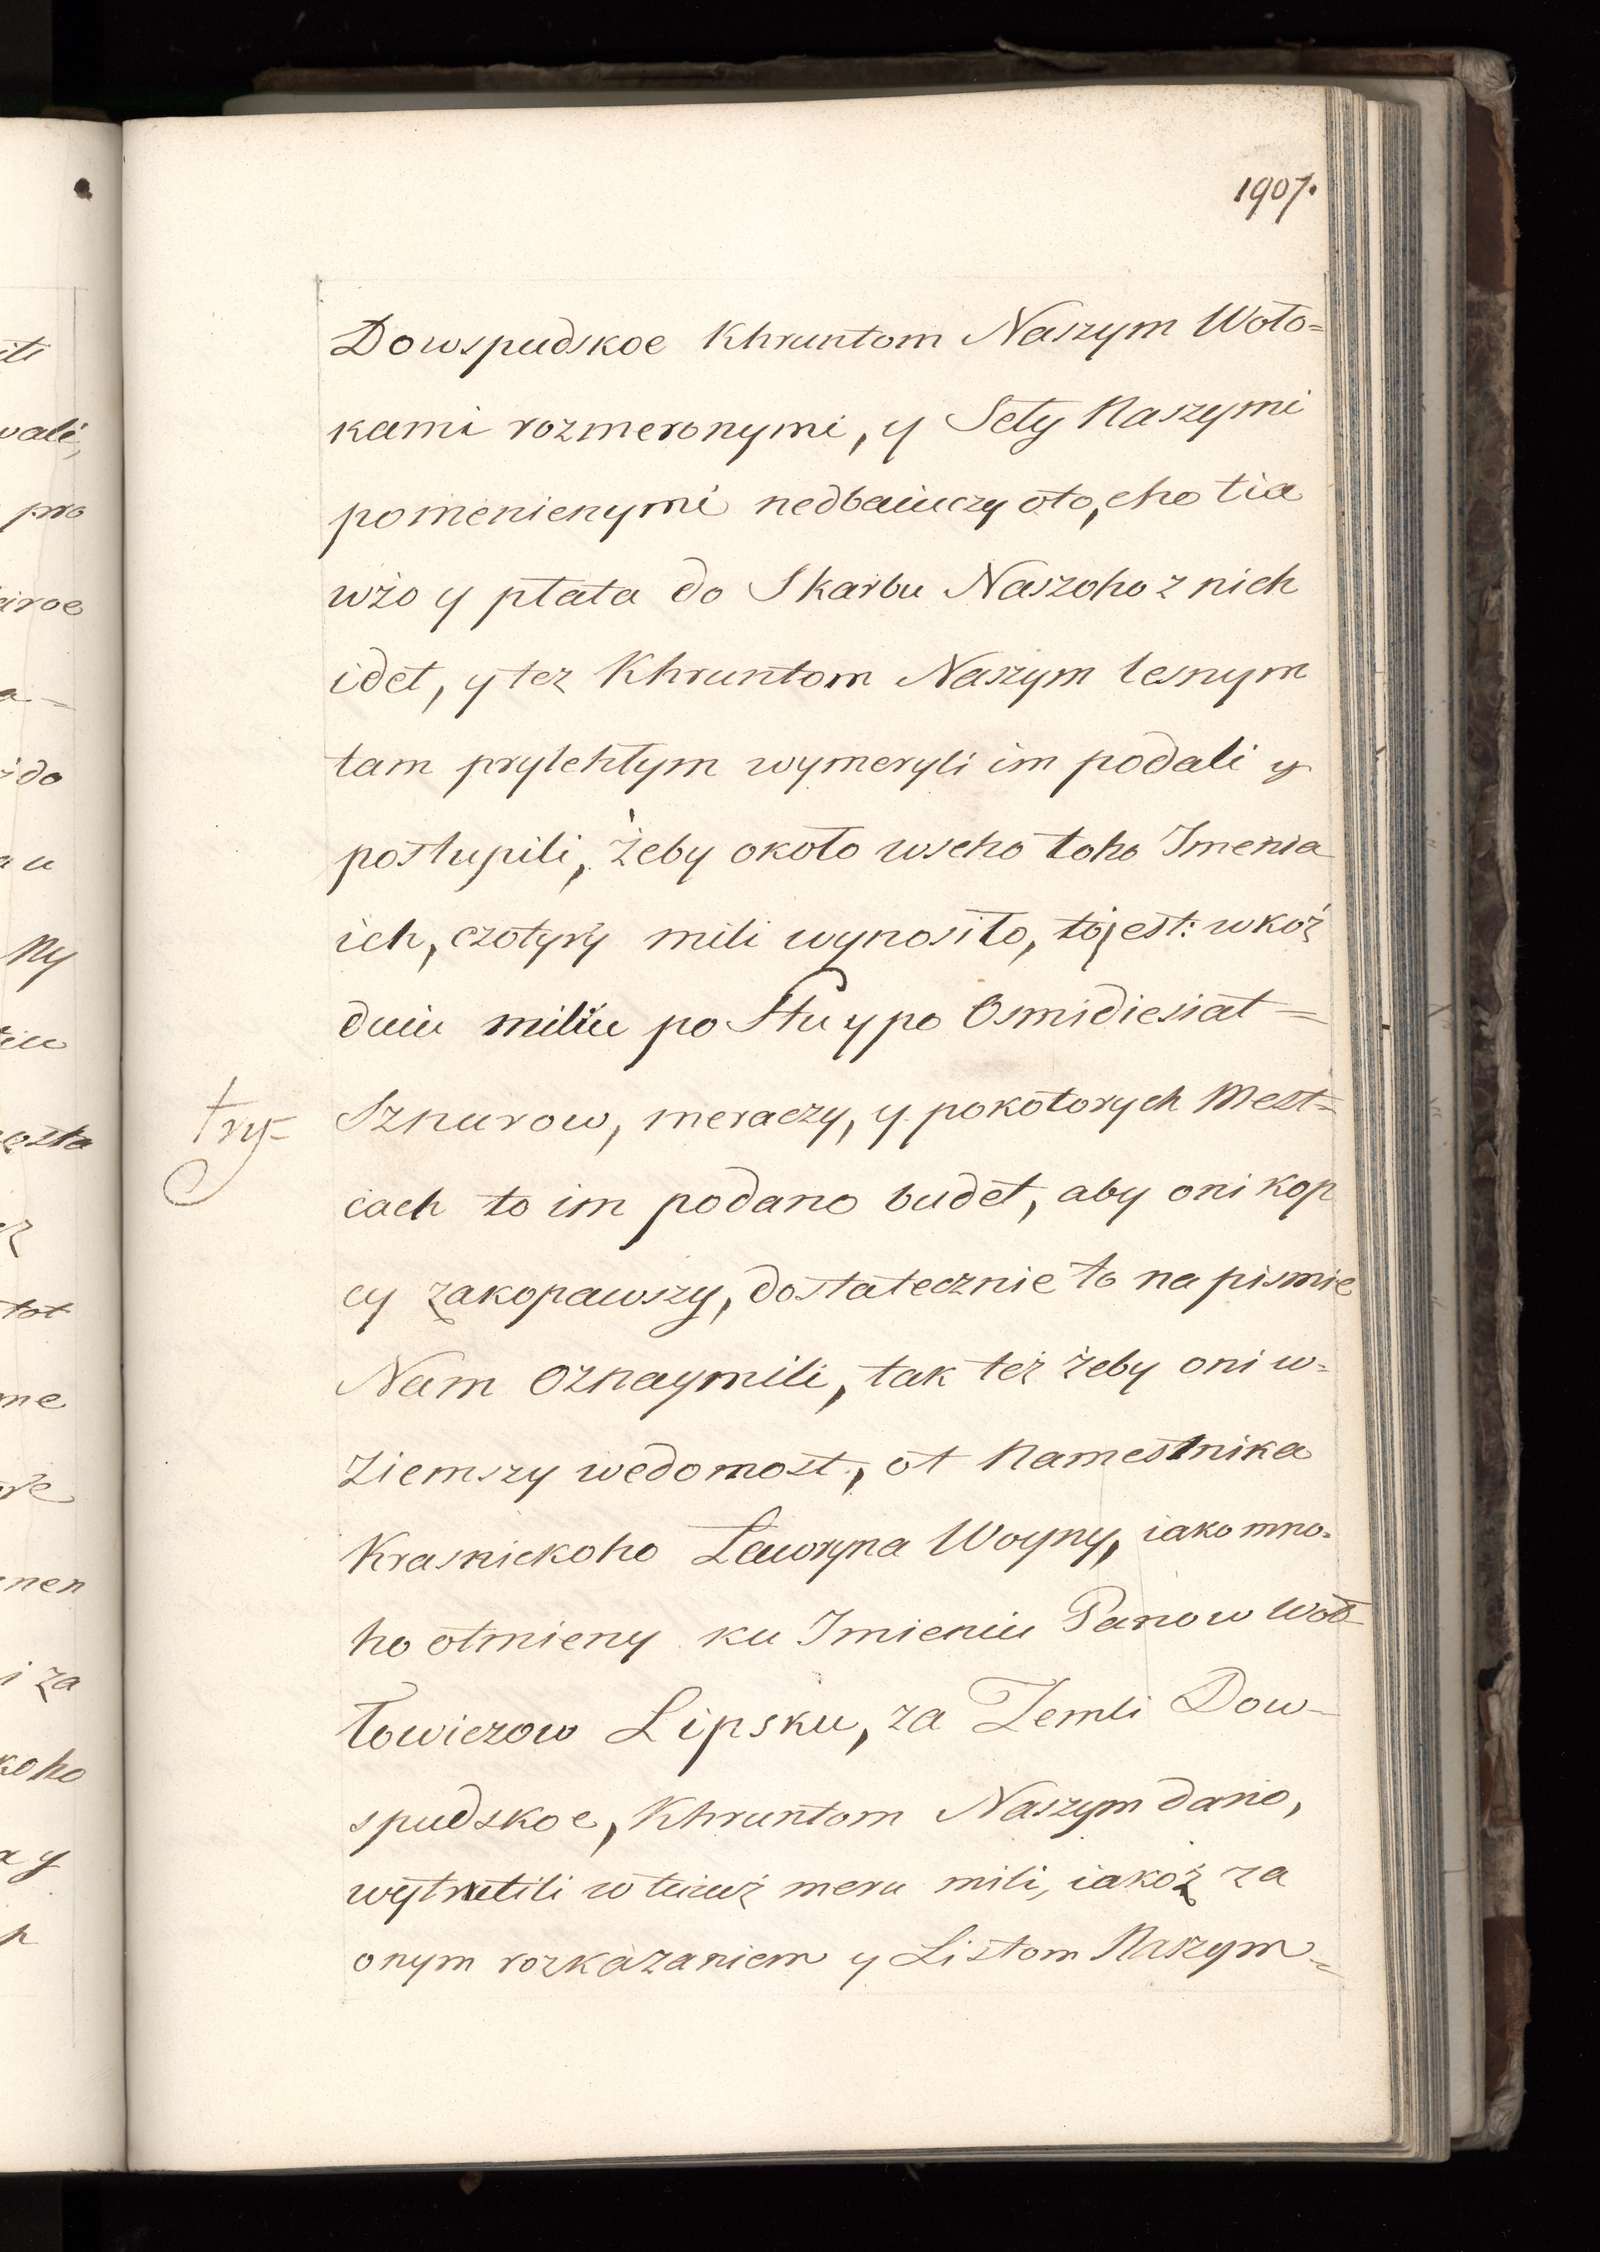 1907.
Dowspudskoe Khruntom Naszym Woło=
kami rozmeronymi, y Sely Naszymi
pomenienymi nedbaiuczy oto, cho tia
wżo y płata do Skarbu Naszoho z nich
idet, y tez Khruntom Naszym lesnym
tam prylehłym wymeryli im podali y
postupili, żeby około wseho toho Imenia
ich, czotyry mili wynosiło, to jest: wkoż
duiu miliu po Stu y po Osmidiesiat=
try=
Sznurow, meraczy, y pokotorych Mest=
cach to im podano budet, aby oni kop
cy zakopawszy, dostatecznie to na pismie
Nam Oznaymili, tak też żeby oni w=
ziemszy wedomost, ot Namestnika
Krasnickoho Ławryna Woyny, iako mno=
ho otmieny ku Imieniu Panow Woł
łowiczow Lipsku, za Zemli Dow-
spudskoe, Khruntom Naszym dano,
wytrutili w tuiuż meru mili, iakoż za
onym rozkazaniem y Listom Naszym=
ili
wali,
pro
aroe
a=
i do
a u
Ny
tiu
tot
me
nen
i za
koho
a y